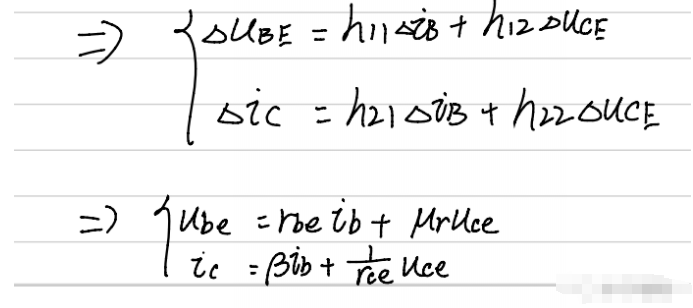 ⇒ { ΔuBE = h11ΔiB + h12ΔuCE
ΔiC = h21ΔiB + h22ΔUCE
⇒ { ube = rbe ib + μruce
ic = βib + 1/rce uce